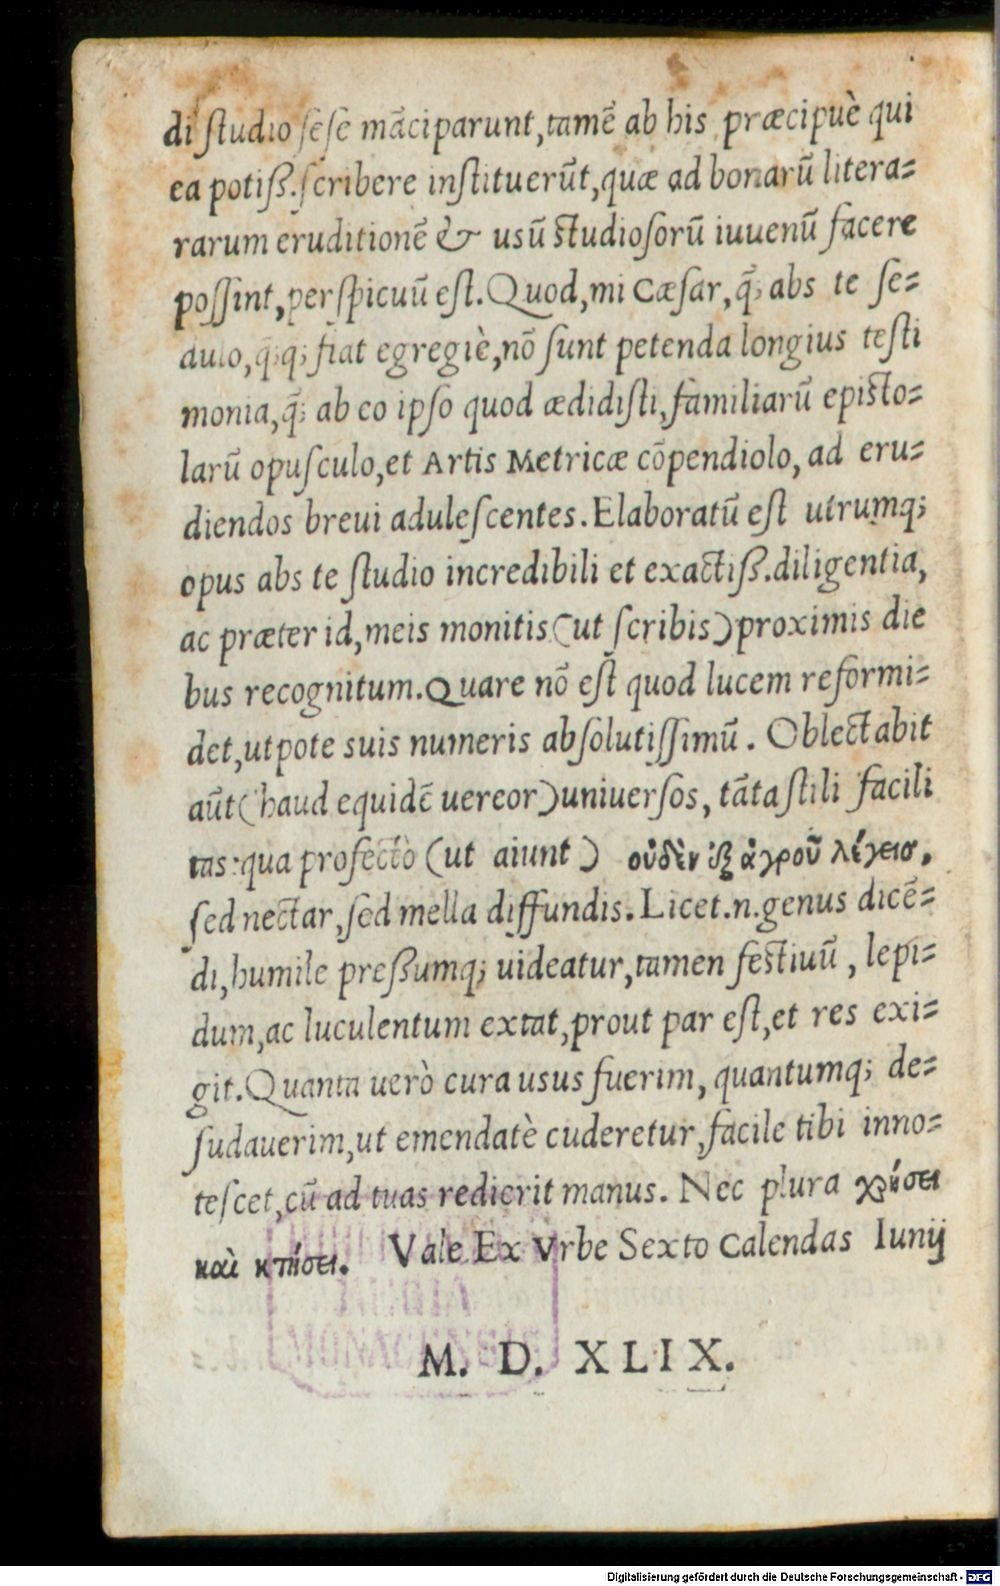 di studio sese mācipartunt, tamē ab his præcipuè qui
ea potiß. scribere instituerūt, quæ ad bonarū litera=
rarum eruditionē & usū studiosorū iuuenū facere
possint, perspicuū est. Quod, mi Cæsar, q̄; abs te se=
dulo, q̄;q; fiat egregiè, nō sunt petenda longius testi
monia, q̄; ab eo ipso quod ædidisti, familiarū episto=
larū opusculo, et Artis Metricæ cōpendiolo, ad eru=
diendos breui adulescentes. Elaboratū est utrumq;
opus abs te studio incredibili et exactiß. diligentia,
ac præter id, meis monitis (ut scribis) proximis die
bus recognitum. Quare nō est quod lucem reformi=
det, utpote suis numeris absolutissimū. Oblectabit
aūt (haud equidē uereor) uniuersos, tāta stili facili
tas: qua profectò (ut aiunt) οὐδὲν ἐξ ἀγροῦ λέγεις,
sed nectar, sed mella diffundis. Licet .n. genus dicē=
di, humile preßumq; uideatur, tamen festiuū, lepi=
dum, ac luculentum extat, prout par est, et res exi=
git. Quanta uerò cura usus fuerim, quantumq; de=
sudauerim, ut emendatè cuderetur, facile tibi inno=
tescet, cū ad tuas redierit manus. Nec plura χρήσει
καὶ κτήσει. Vale Ex Vrbe Sexto Calendas Iunij
M. D. XLIX.
MONACENSIS
Digitalisierung gefördert durch die Deutsche Forschungsgemeinschaft - DFG